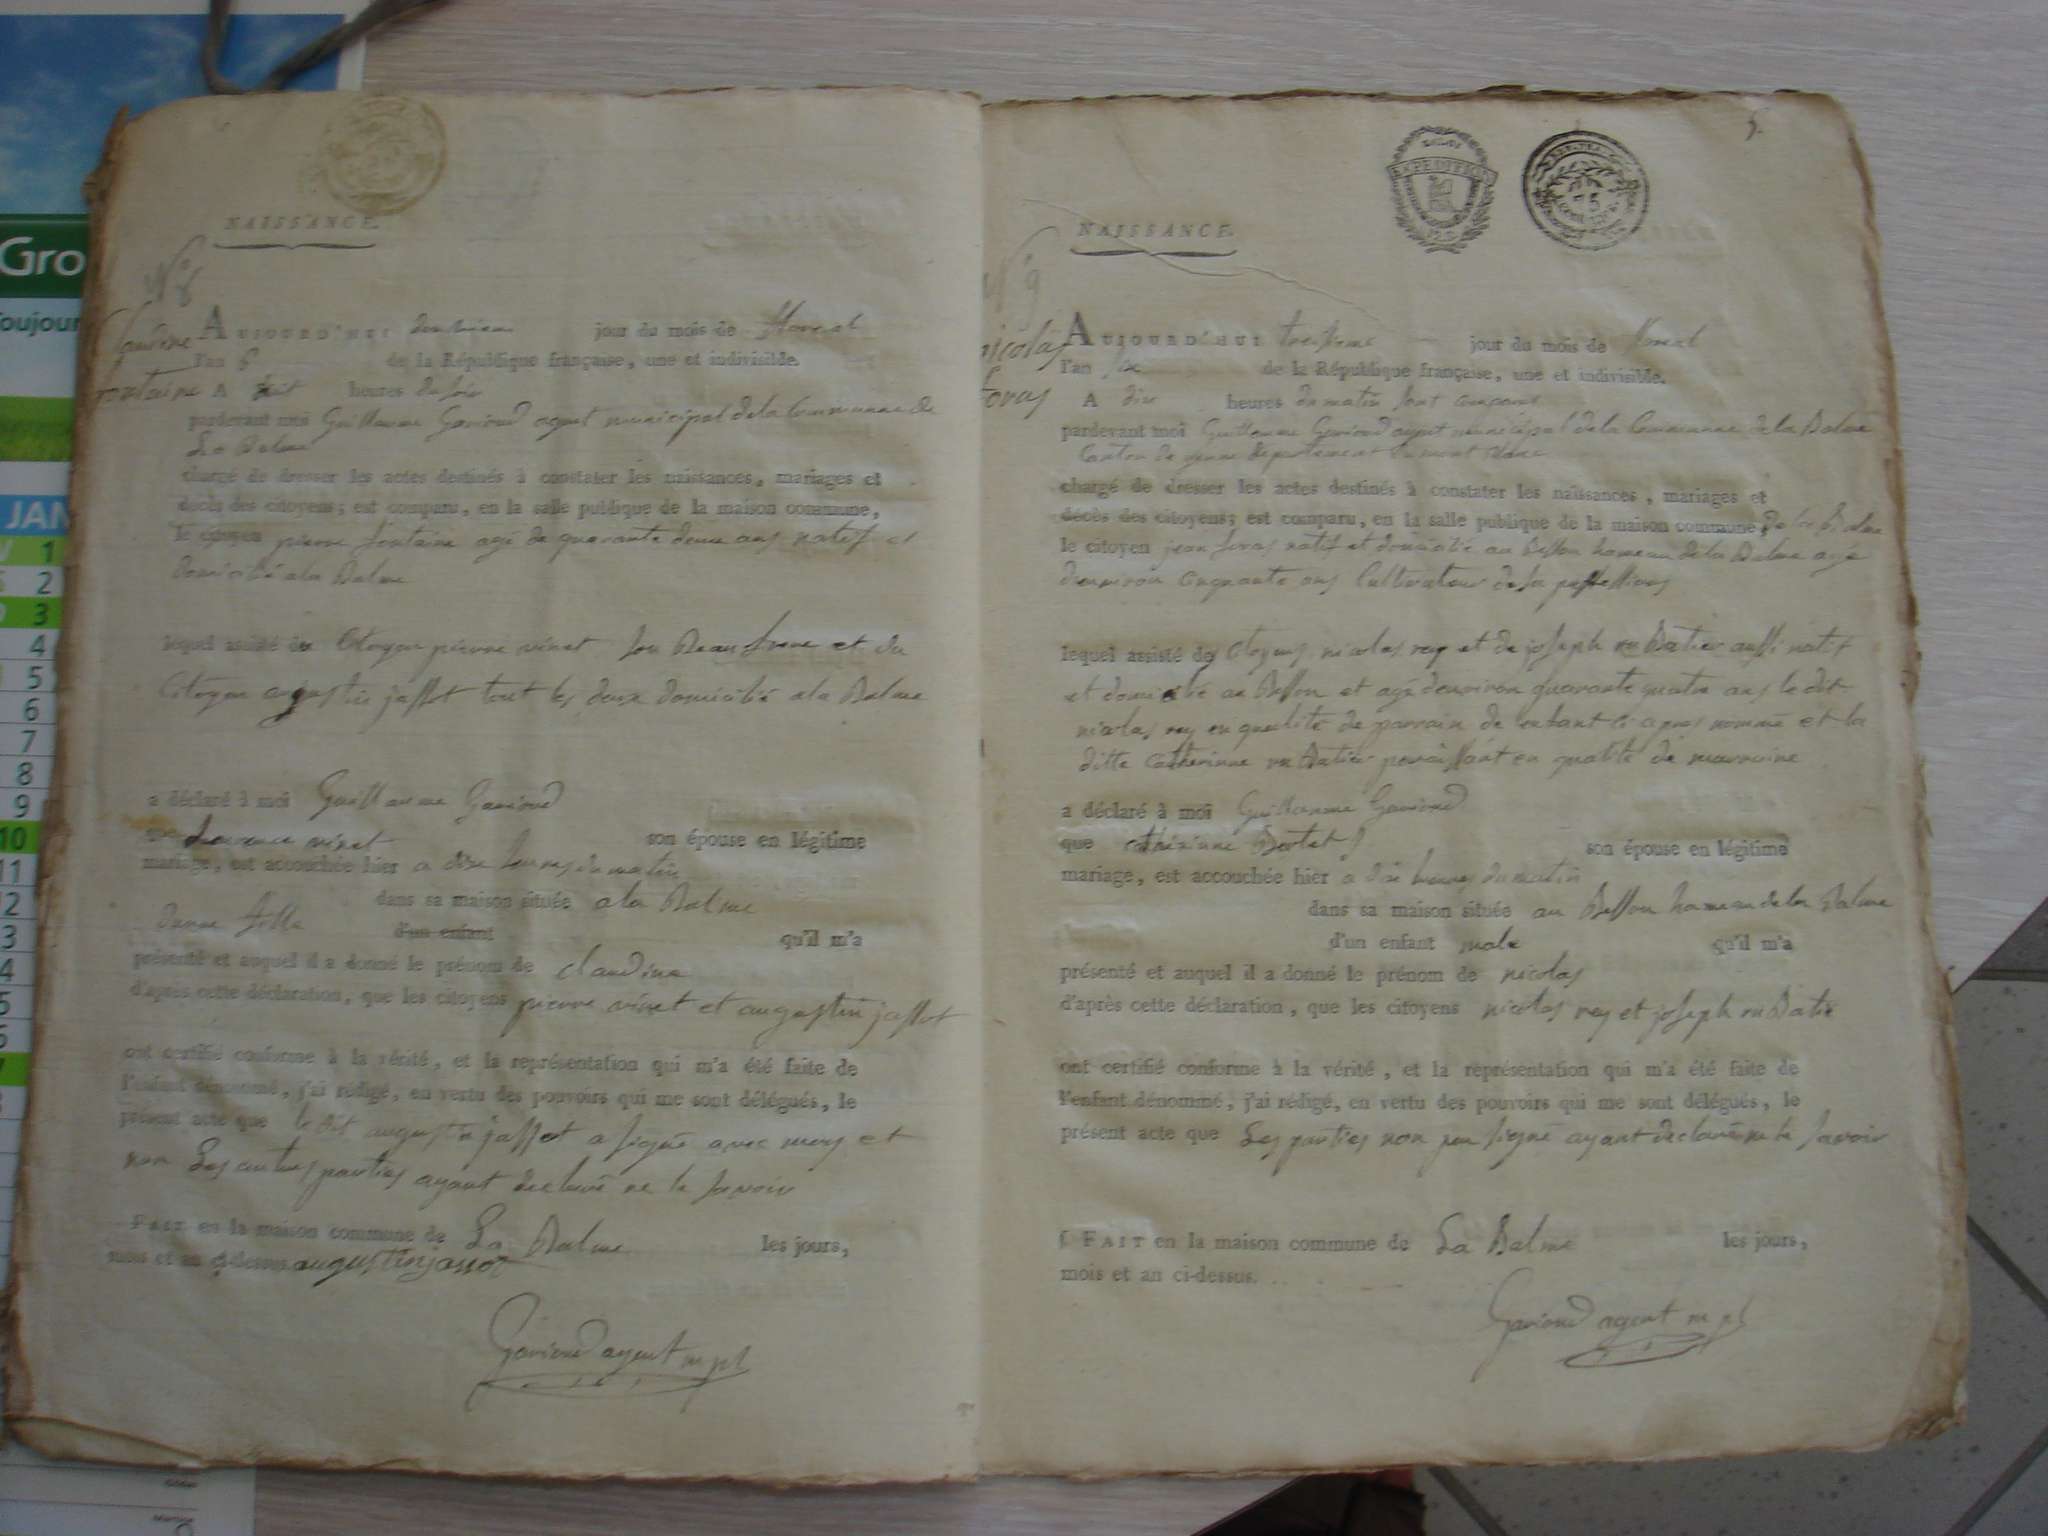 NAISSANCE.
N° 8
Claudine
fontaine
AUJOURD'HUI jour du mois de floreal
l'an 6 de la République française, une et indivisible.
A huit heures du soir
pardevant moi Guillaume Gavioud agent municipal de la Commune de
La Balme
chargé de dresser les actes destinés à constater les naissances, mariages et
décès des citoyens; est comparu, en la salle publique de la maison commune,
le citoyen pierre fontaine agé de quarante deux ans natif et
domicilié a la Balme
lequel assisté du Citoyen pierre vinet son Beau frere et du
Citoyen augustin jassot tout les deux domicilié a la Balme
a déclaré à moi Guillaume Gavioud
que Laurence vinet son épouse en légitime
mariage, est accouchée hier a dix heures du matin
dans sa maison située a la Balme
dune fille d'un enfant qu'il m'a
présenté et auquel il a donné le prénom de claudine
d'après cette déclaration, que les citoyens pierre vinet et augustin jassot
ont certifié conforme à la vérité, et la représentation qui m'a été faite de
l'enfant dénommé, j'ai rédigé, en vertu des pouvoirs qui me sont délégués, le
présent acte que le dit augustin jassot a signé avec moy et
non Les autres parties ayant declaré ne le savoir
FAIT en la maison commune de La Balme les jours,
mois et an ci-dessus augustin jassot
Gavioud agent mpl
5.
NAISSANCE.
N° 9
nicolas
foras
AUJOURD'HUI treisieme jour du mois de floreal
l'an six de la République française, une et indivisible.
A dix heures du matin sont comparus
pardevant moi Guillaume Gavioud agent municipal de la Commune de la Balme
Canton de yenne departement du mont Blanc
chargé de dresser les actes destinés à constater les naissances, mariages et
décès des citoyens; est comparu, en la salle publique de la maison commune, de la Balme
le citoyen jean foras natif et domicilié au Besson hameau de la Balme agé
denviron Cinquante ans Cultivateur de sa proffession
lequel assisté des Citoyens nicolas rey et de joseph rubatier aussi natif
et domicilié au Besson et agé denviron quarante quatre ans le dit
nicolas rey en qualité de parrain de lenfant ci apres nommé et la
ditte Catherinne rubatier paroissant en qualité de marraine
a déclaré à moi Guillaume Gavioud
que catherinne Bertet son épouse en légitime
mariage, est accouchée hier a dix heures du matin
dans sa maison située au Besson hameau de la Balme
d'un enfant male qu'il m'a
présenté et auquel il a donné le prénom de nicolas
d'après cette déclaration, que les citoyens nicolas rey et joseph rubatie
ont certifié conforme à la vérité, et la représentation qui m'a été faite de
l'enfant dénommé, j'ai rédigé, en vertu des pouvoirs qui me sont délégués, le
présent acte que Les parties non peu signé ayant declaré ne le savoir
FAIT en la maison commune de La Balme les jours,
mois et an ci-dessus.
Gavioud agent mpl
Gro
Toujour
JAN
1
2
3
4
5
6
7
8
9
10
11
12